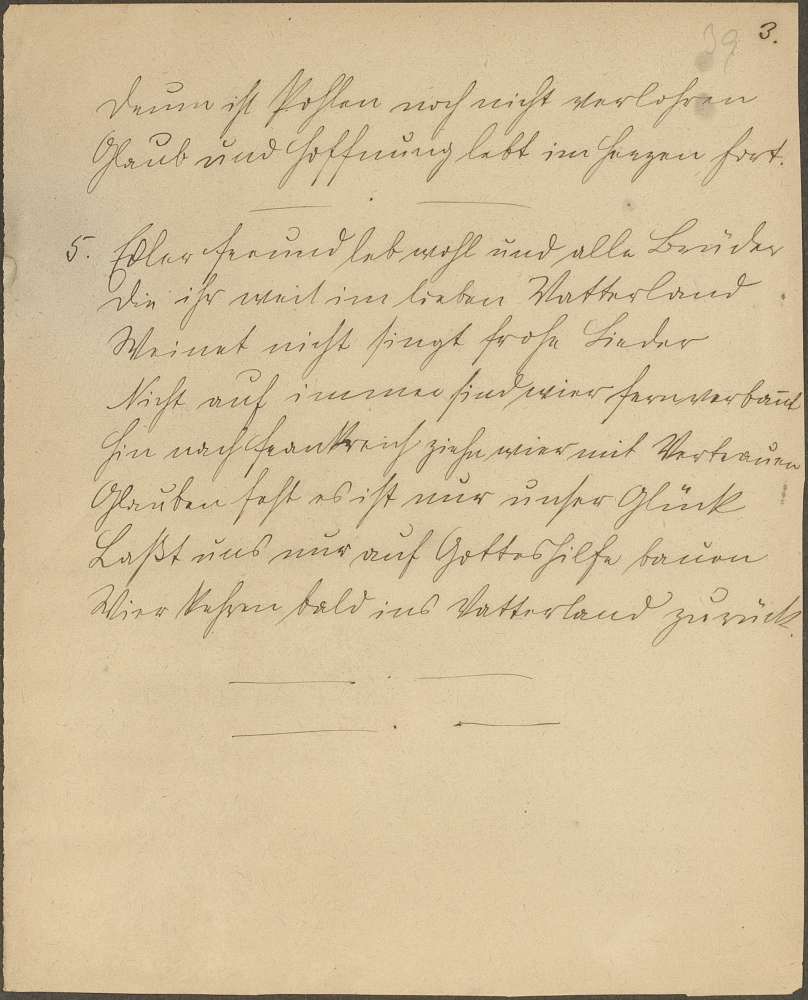 39
3.
Drum ist Pohlen noch nicht verlohren
Glaub und Hoffnung lebt im Herzen fort.
5. Edler Freund leb wohl und alle Brüder
Die ihr weil im lieben Vatterland
Weinet nicht singt frohe Lieder
Nicht auf immer sind wier fern verbant
Hin nach Frankreich ziehn wier mit Vertrauen
Glauben fest es ist nur unser Glück
Laßt uns nur auf Gotteshilfe bauen
Wier kehren bald ins Vatterland zurück.